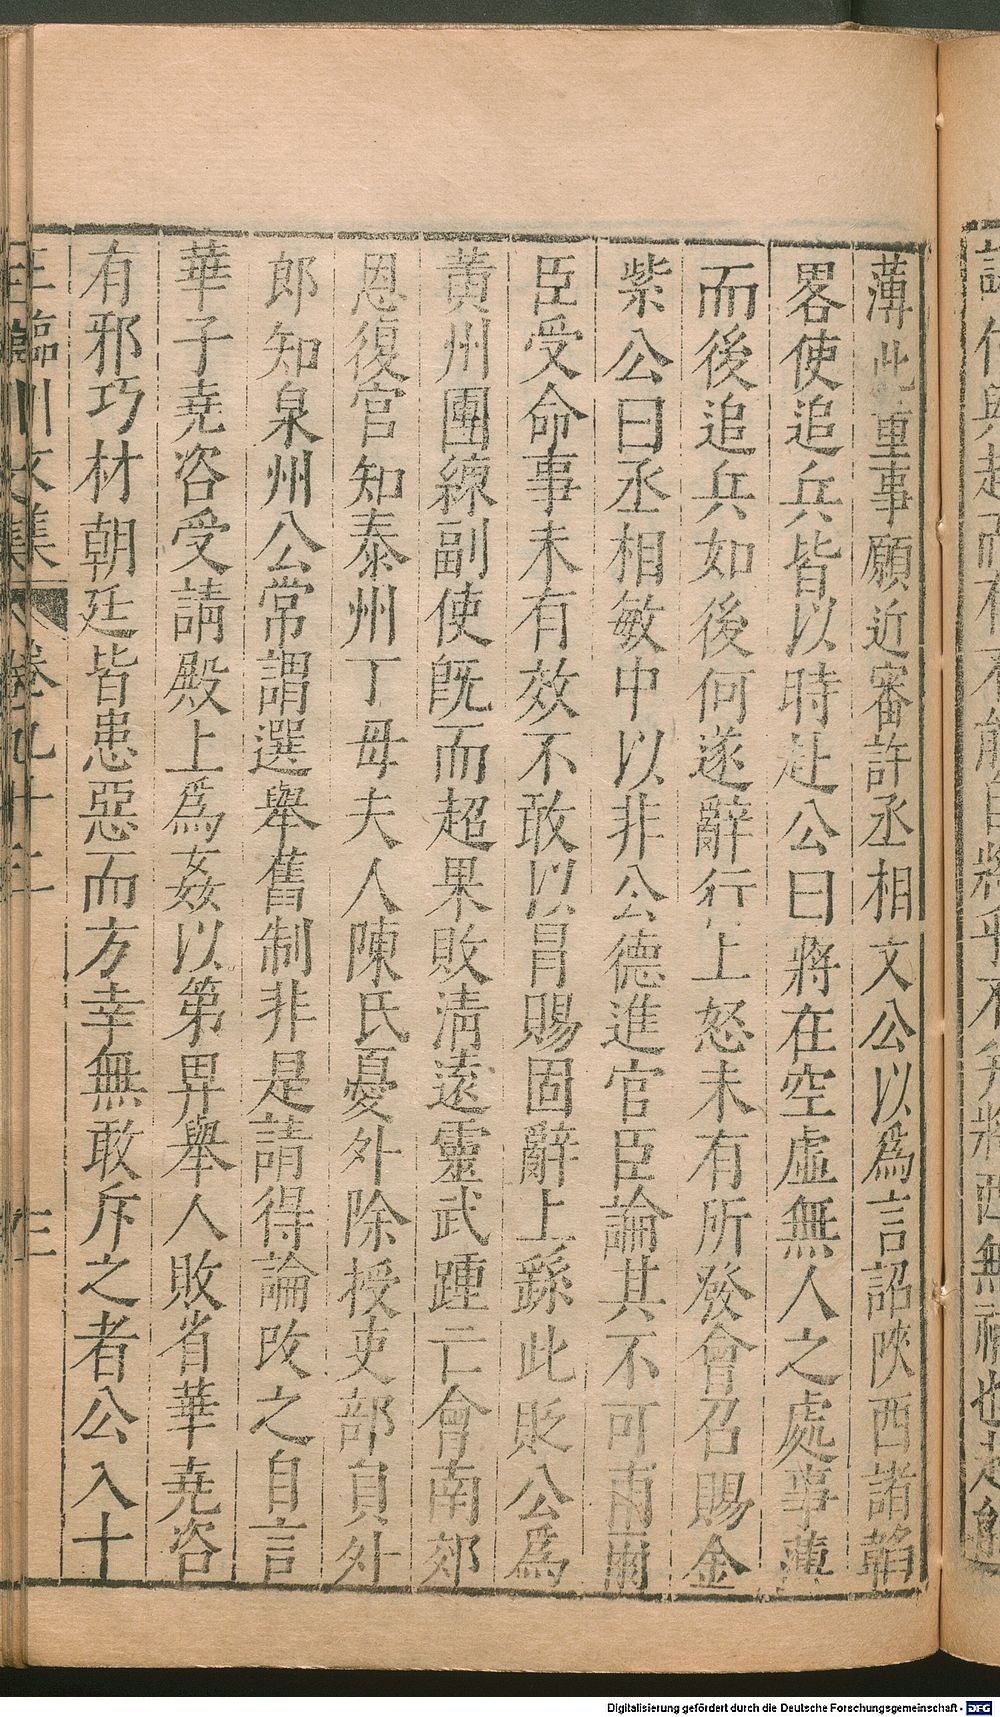 薄此重事願近審許丞相文公以爲言詔陜西諸韜
畧使追兵皆以時赴公曰將在空虛無人之處事薄
而後追兵如後何遂辭行上怒未有所發會召賜金
紫公曰丞相敏中以非公德進官臣論其不可甫爾
臣受命事未有效不敢以冒賜固辭上繇此貶公爲
黄州團練副使旣而超果敗淸遠靈武踵亡會南郊
恩復官知泰州丁毋夫人陳氏憂外除授吏部員外
郎知泉州公常謂選舉舊制非是請得論改之自言
華子堯咨受請殿上爲姦以第畀舉人敗省華堯咨
有邪巧材朝廷皆患惡而方幸無敢斥之者公入十
王臨川文集 卷九十二 三
Digitalisierung gefördert durch die Deutsche Forschungsgemeinschaft - DFG